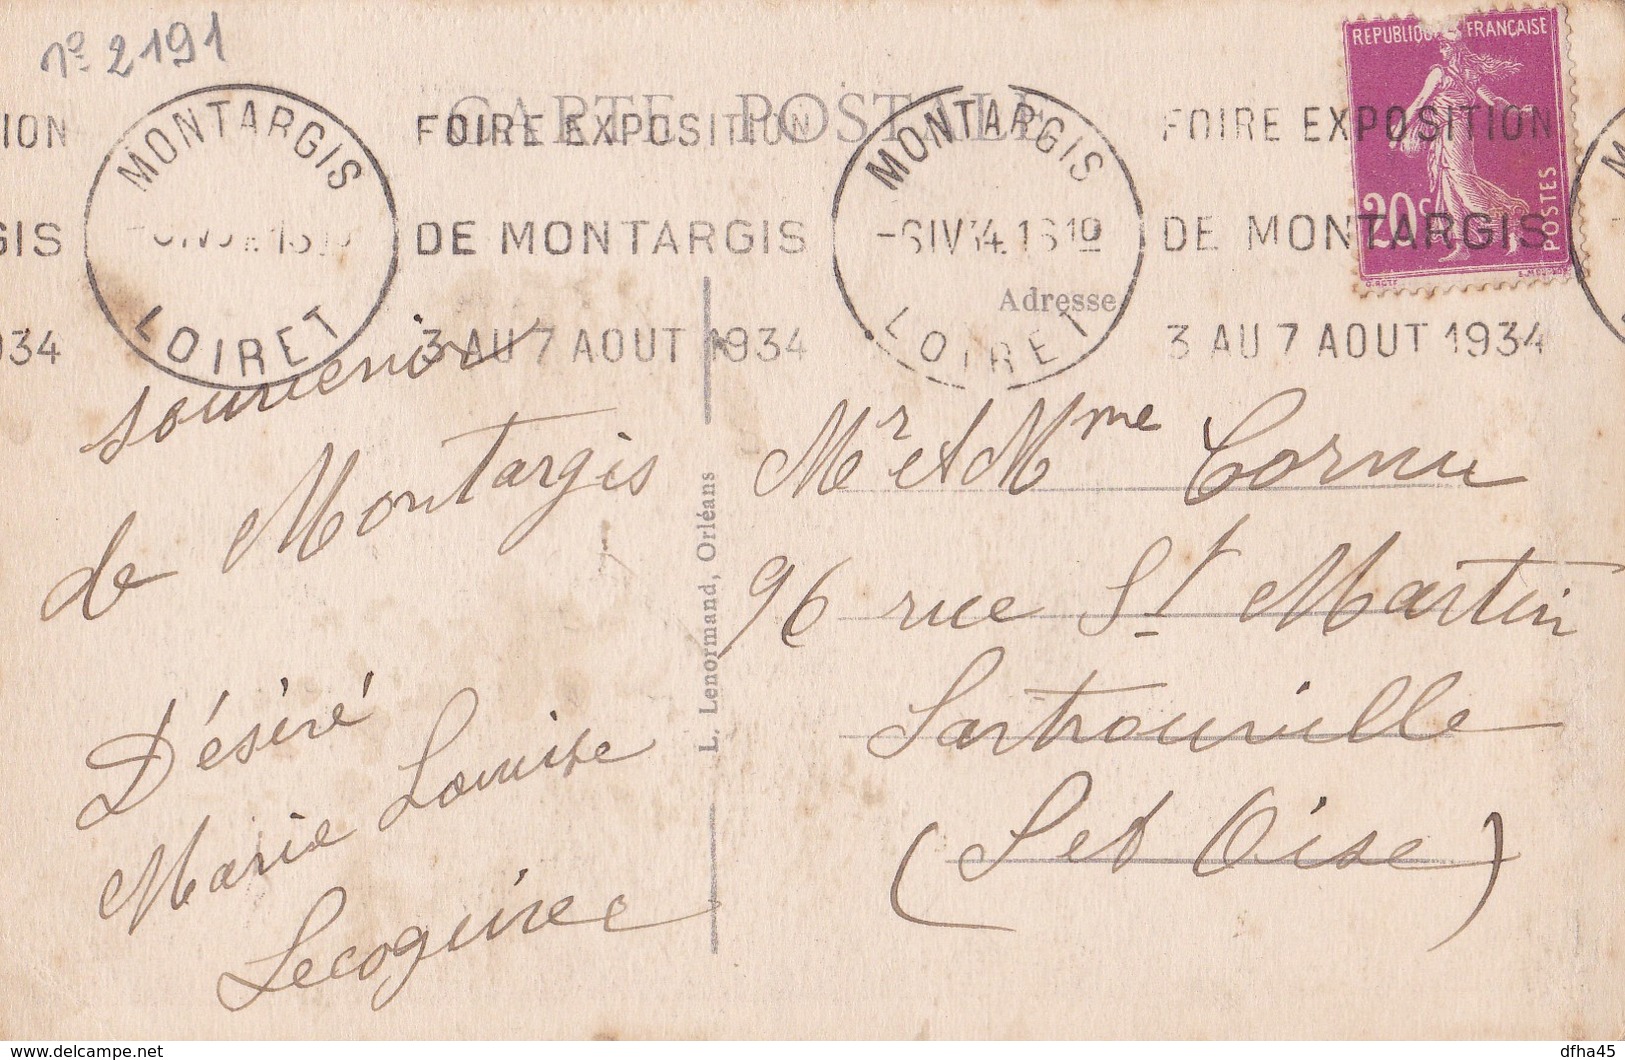 nº 2191
CARTE POSTALE
REPUBLIQUE FRANÇAISE
20c
POSTES
ION
GIS
934
MONTARGIS
LOIRET
FOIRE EXPOSITION
DE MONTARGIS
3 AU 7 AOUT 1934
MONTARGIS
-6 IV 34. 16 10
LOIRET
FOIRE EXPOSITION
DE MONTARGIS
3 AU 7 AOUT 1934
Adresse
souvenir
de Montargis
Désiré
Marie Louise
L. Lenormand, Orléans
Mr et Mme Cornu
96 rue St Martin
Sartrouville
(S et Oise)
delcampe.net
dfha45